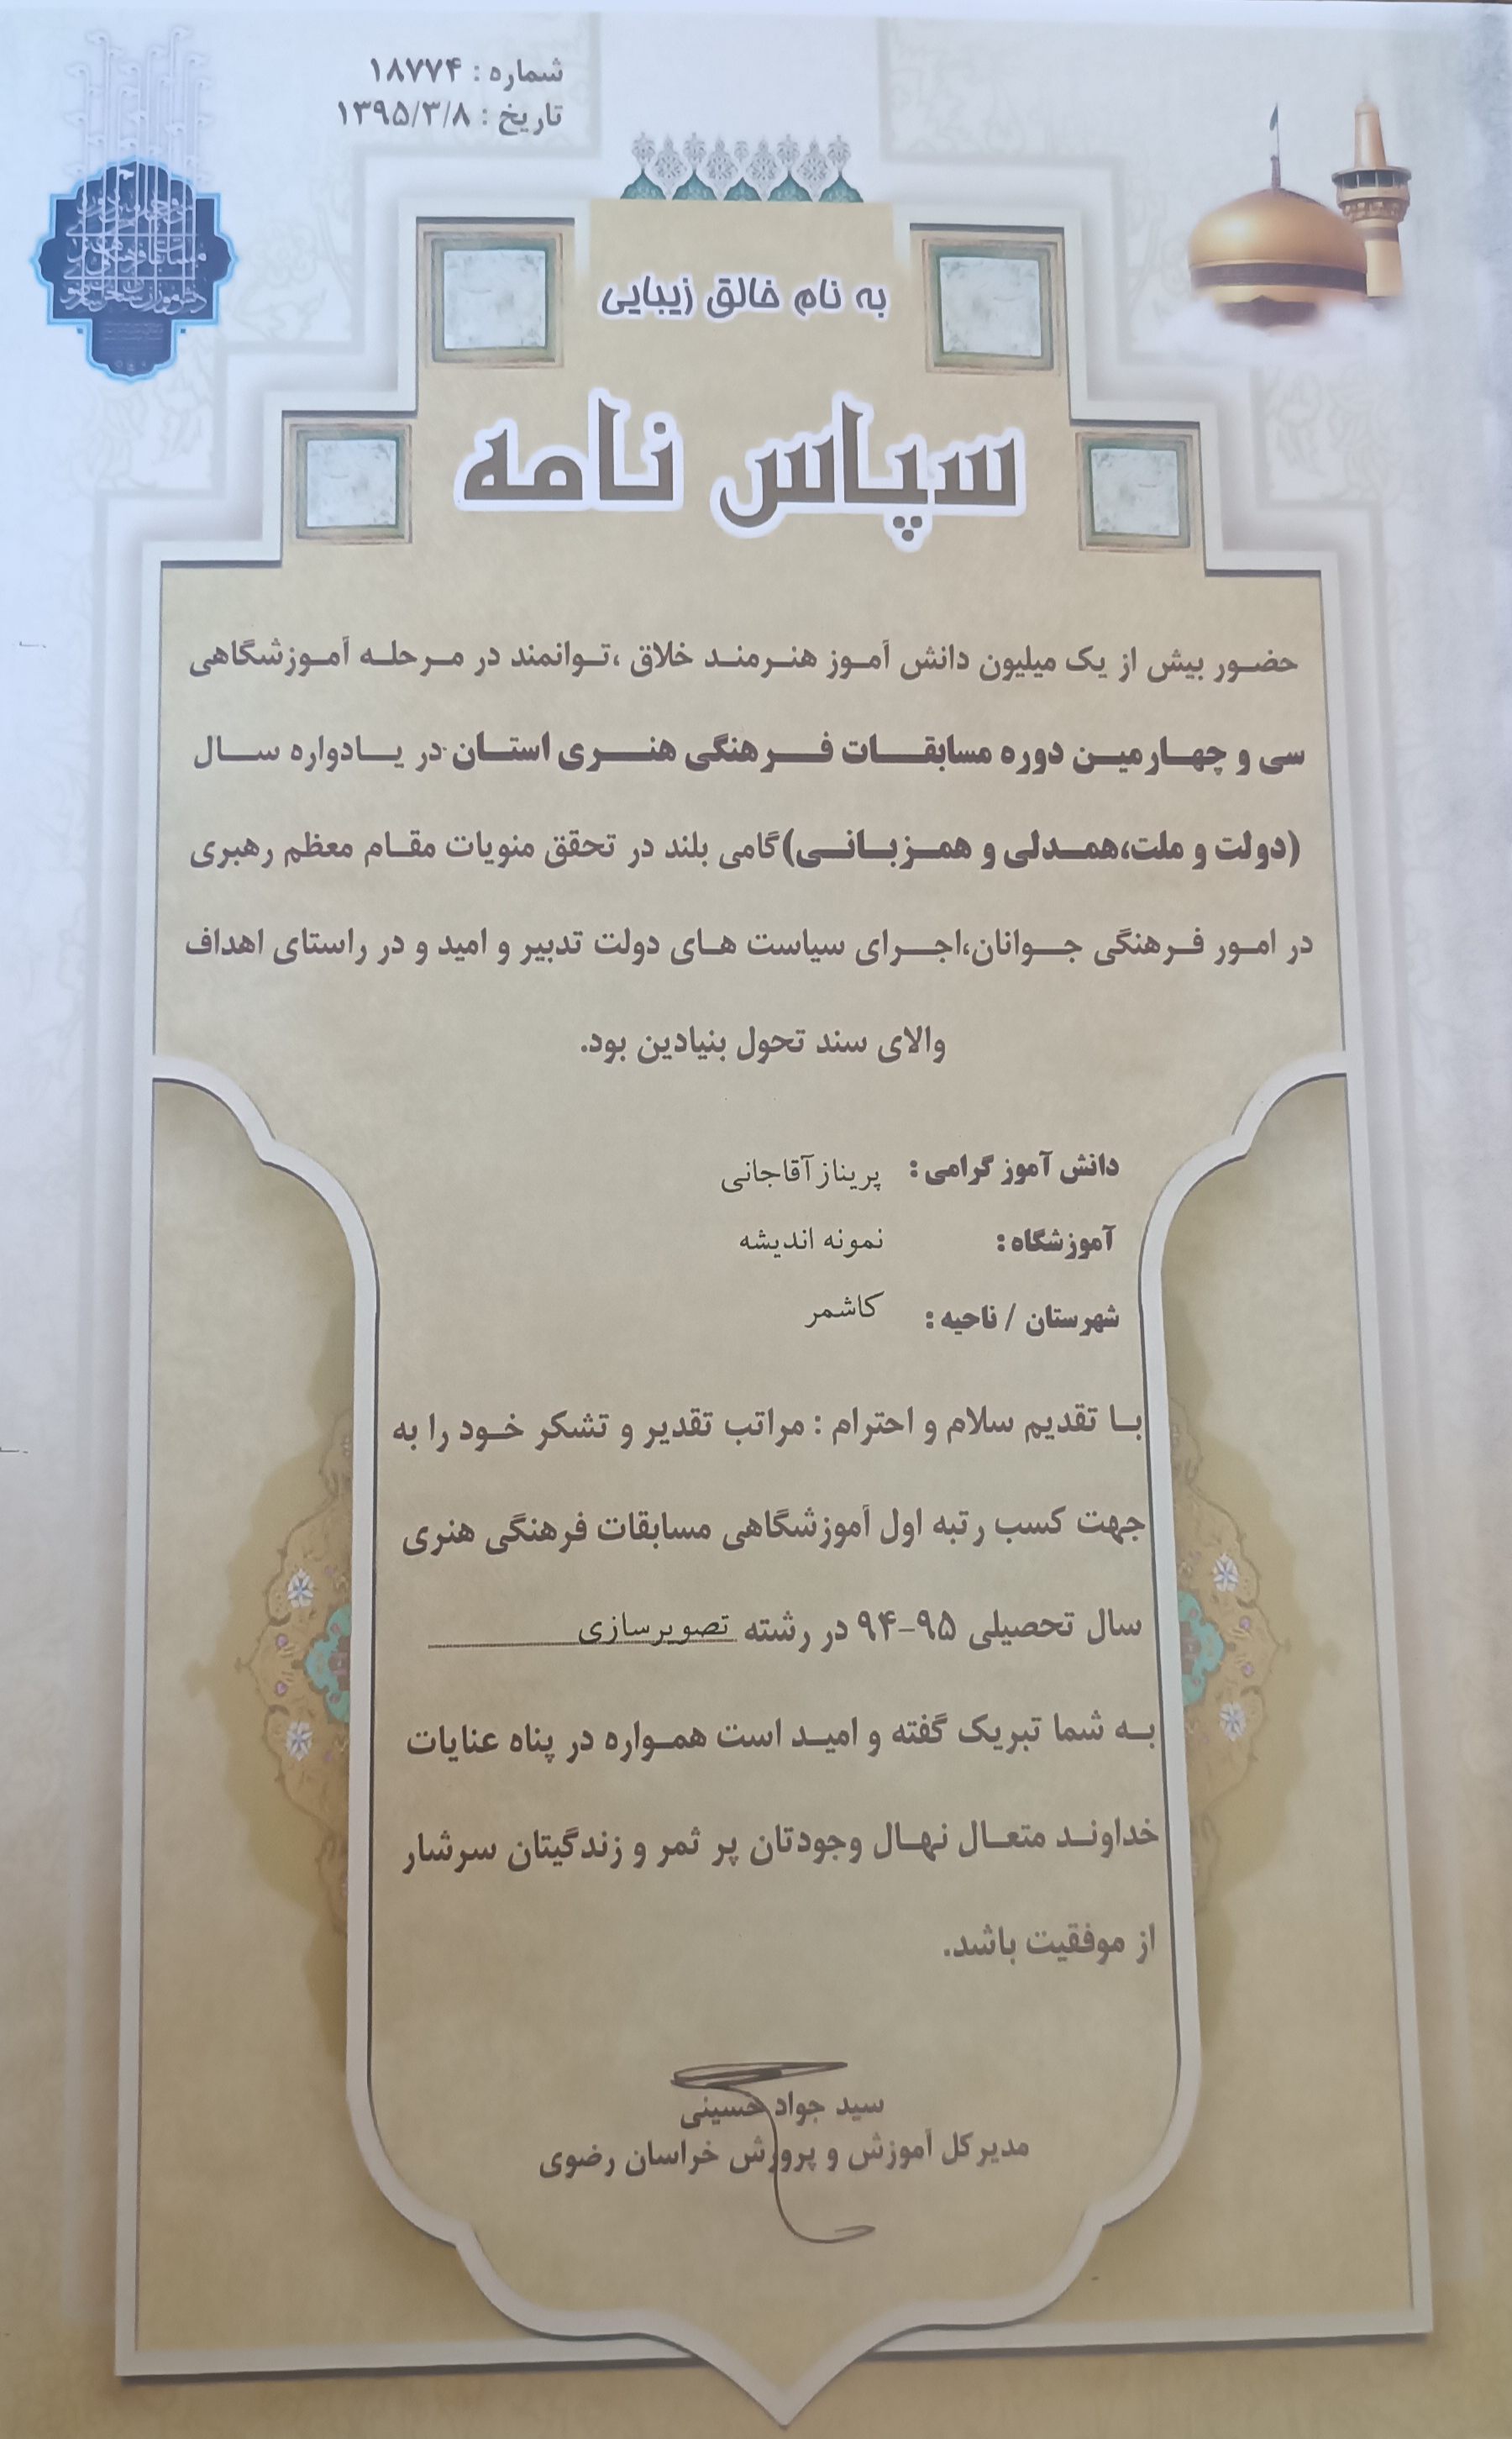 شماره : ۱۸۷۷۴
تاریخ : ۱۳۹۵/۳/۸
به نام خالق زیبایی
سپاس نامه
حضور بیش از یک میلیون دانش آموز هنرمند خلاق ،توانمند در مرحله آموزشگاهی
سی و چهارمین دوره مسابقات فرهنگی هنری استان در یادواره سال
(دولت و ملت،همدلی و همزبانی)گامی بلند در تحقق منویات مقام معظم رهبری
در امور فرهنگی جوانان،اجرای سیاست های دولت تدبیر و امید و در راستای اهداف
والای سند تحول بنیادین بود.
دانش آموز گرامی : پریناز آقاجانی
آموزشگاه : نمونه اندیشه
شهرستان / ناحیه : کاشمر
با تقدیم سلام و احترام : مراتب تقدیر و تشکر خود را به
جهت کسب رتبه اول آموزشگاهی مسابقات فرهنگی هنری
سال تحصیلی ۹۵-۹۴ در رشته تصویرسازی
به شما تبریک گفته و امید است همواره در پناه عنایات
خداوند متعال نهال وجودتان پر ثمر و زندگیتان سرشار
از موفقیت باشد.
سید جواد حسینی
مدیرکل آموزش و پرورش خراسان رضوی